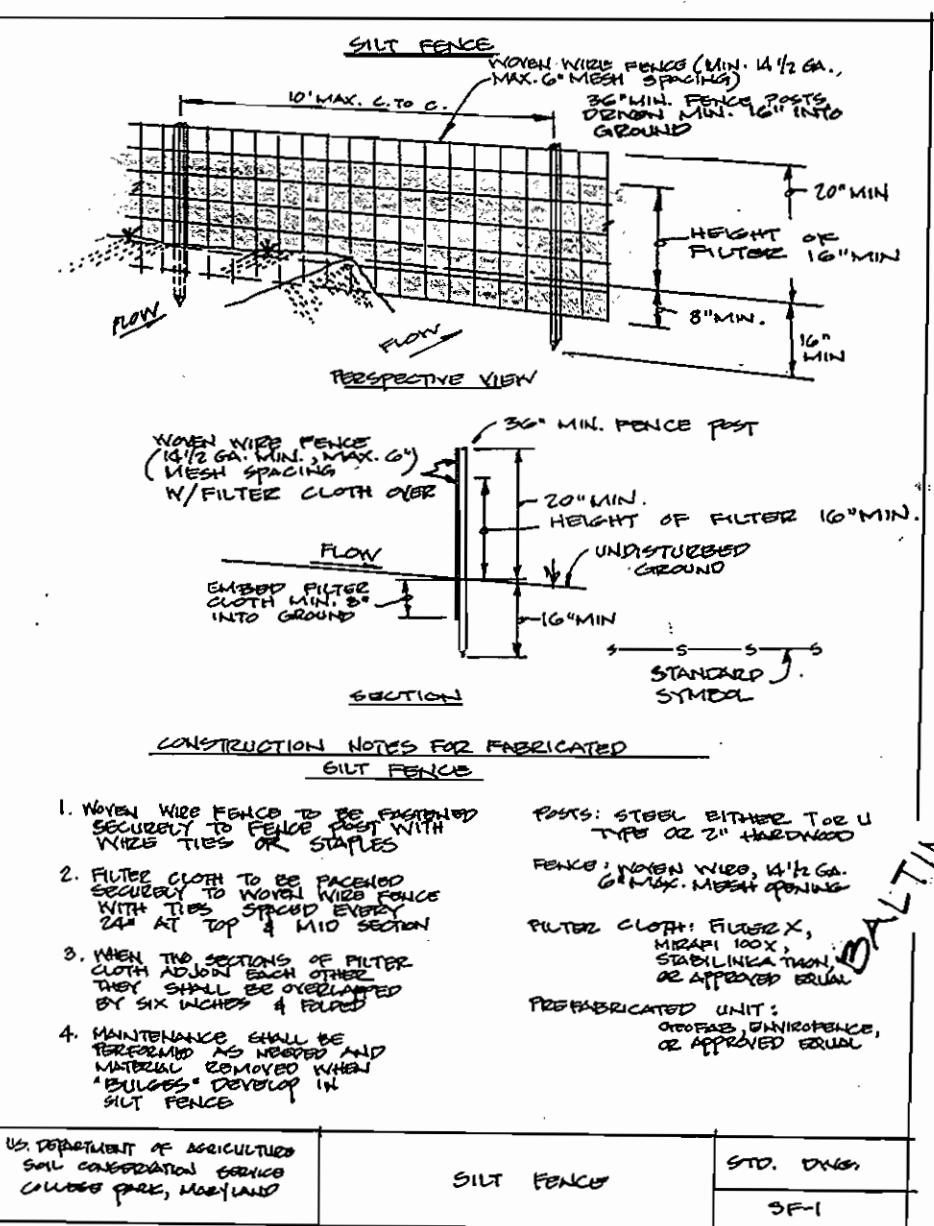 SILT FENCE
WOVEN WIRE FENCE (MIN. 14 1/2 GA.,
MAX. 6" MESH SPACING)
10' MAX. C. TO C.
36" MIN. FENCE POSTS
DRIVEN MIN. 16" INTO
GROUND
20" MIN
HEIGHT OF
FILTER 16" MIN
8" MIN.
16"
MIN
FLOW
FLOW
PERSPECTIVE VIEW
36" MIN. FENCE POST
WOVEN WIRE FENCE
(14 1/2 GA. MIN., MAX. 6")
MESH SPACING
W/FILTER CLOTH OVER
20" MIN.
HEIGHT OF FILTER 16" MIN.
FLOW
UNDISTURBED
GROUND
EMBED FILTER
CLOTH MIN. 8"
INTO GROUND
16" MIN
S S S S
STANDARD
SYMBOL
SECTION
CONSTRUCTION NOTES FOR FABRICATED
SILT FENCE
1. WOVEN WIRE FENCE TO BE FASTENED
SECURELY TO FENCE POST WITH
WIRE TIES OR STAPLES
2. FILTER CLOTH TO BE FACENED
SECURELY TO WOVEN WIRE FENCE
WITH TIES SPACED EVERY
24" AT TOP & MID SECTION
3. WHEN TWO SECTIONS OF FILTER
CLOTH ADJOIN EACH OTHER
THEY SHALL BE OVERLAPPED
BY SIX INCHES & FOLDED
4. MAINTENANCE SHALL BE
PERFORMED AS NEEDED AND
MATERIAL REMOVED WHEN
"BULGES" DEVELOP IN
SILT FENCE
POSTS: STEEL EITHER T OR U
TYPE OR 2" HARDWOOD
FENCE: WOVEN WIRE, 14 1/2 GA.
6" MAX. MESH OPENING
FILTER CLOTH: FILTER X,
MIRAFI 100X,
STABILINKA
OR APPROVED EQUAL
PREFABRICATED UNIT:
GEOFAB, ENVIROFENCE,
OR APPROVED EQUAL
BALTI
U.S. DEPARTMENT OF AGRICULTURE
SOIL CONSERVATION SERVICE
COLLEGE PARK, MARYLAND
SILT FENCE
STD. DWG.
SF-1